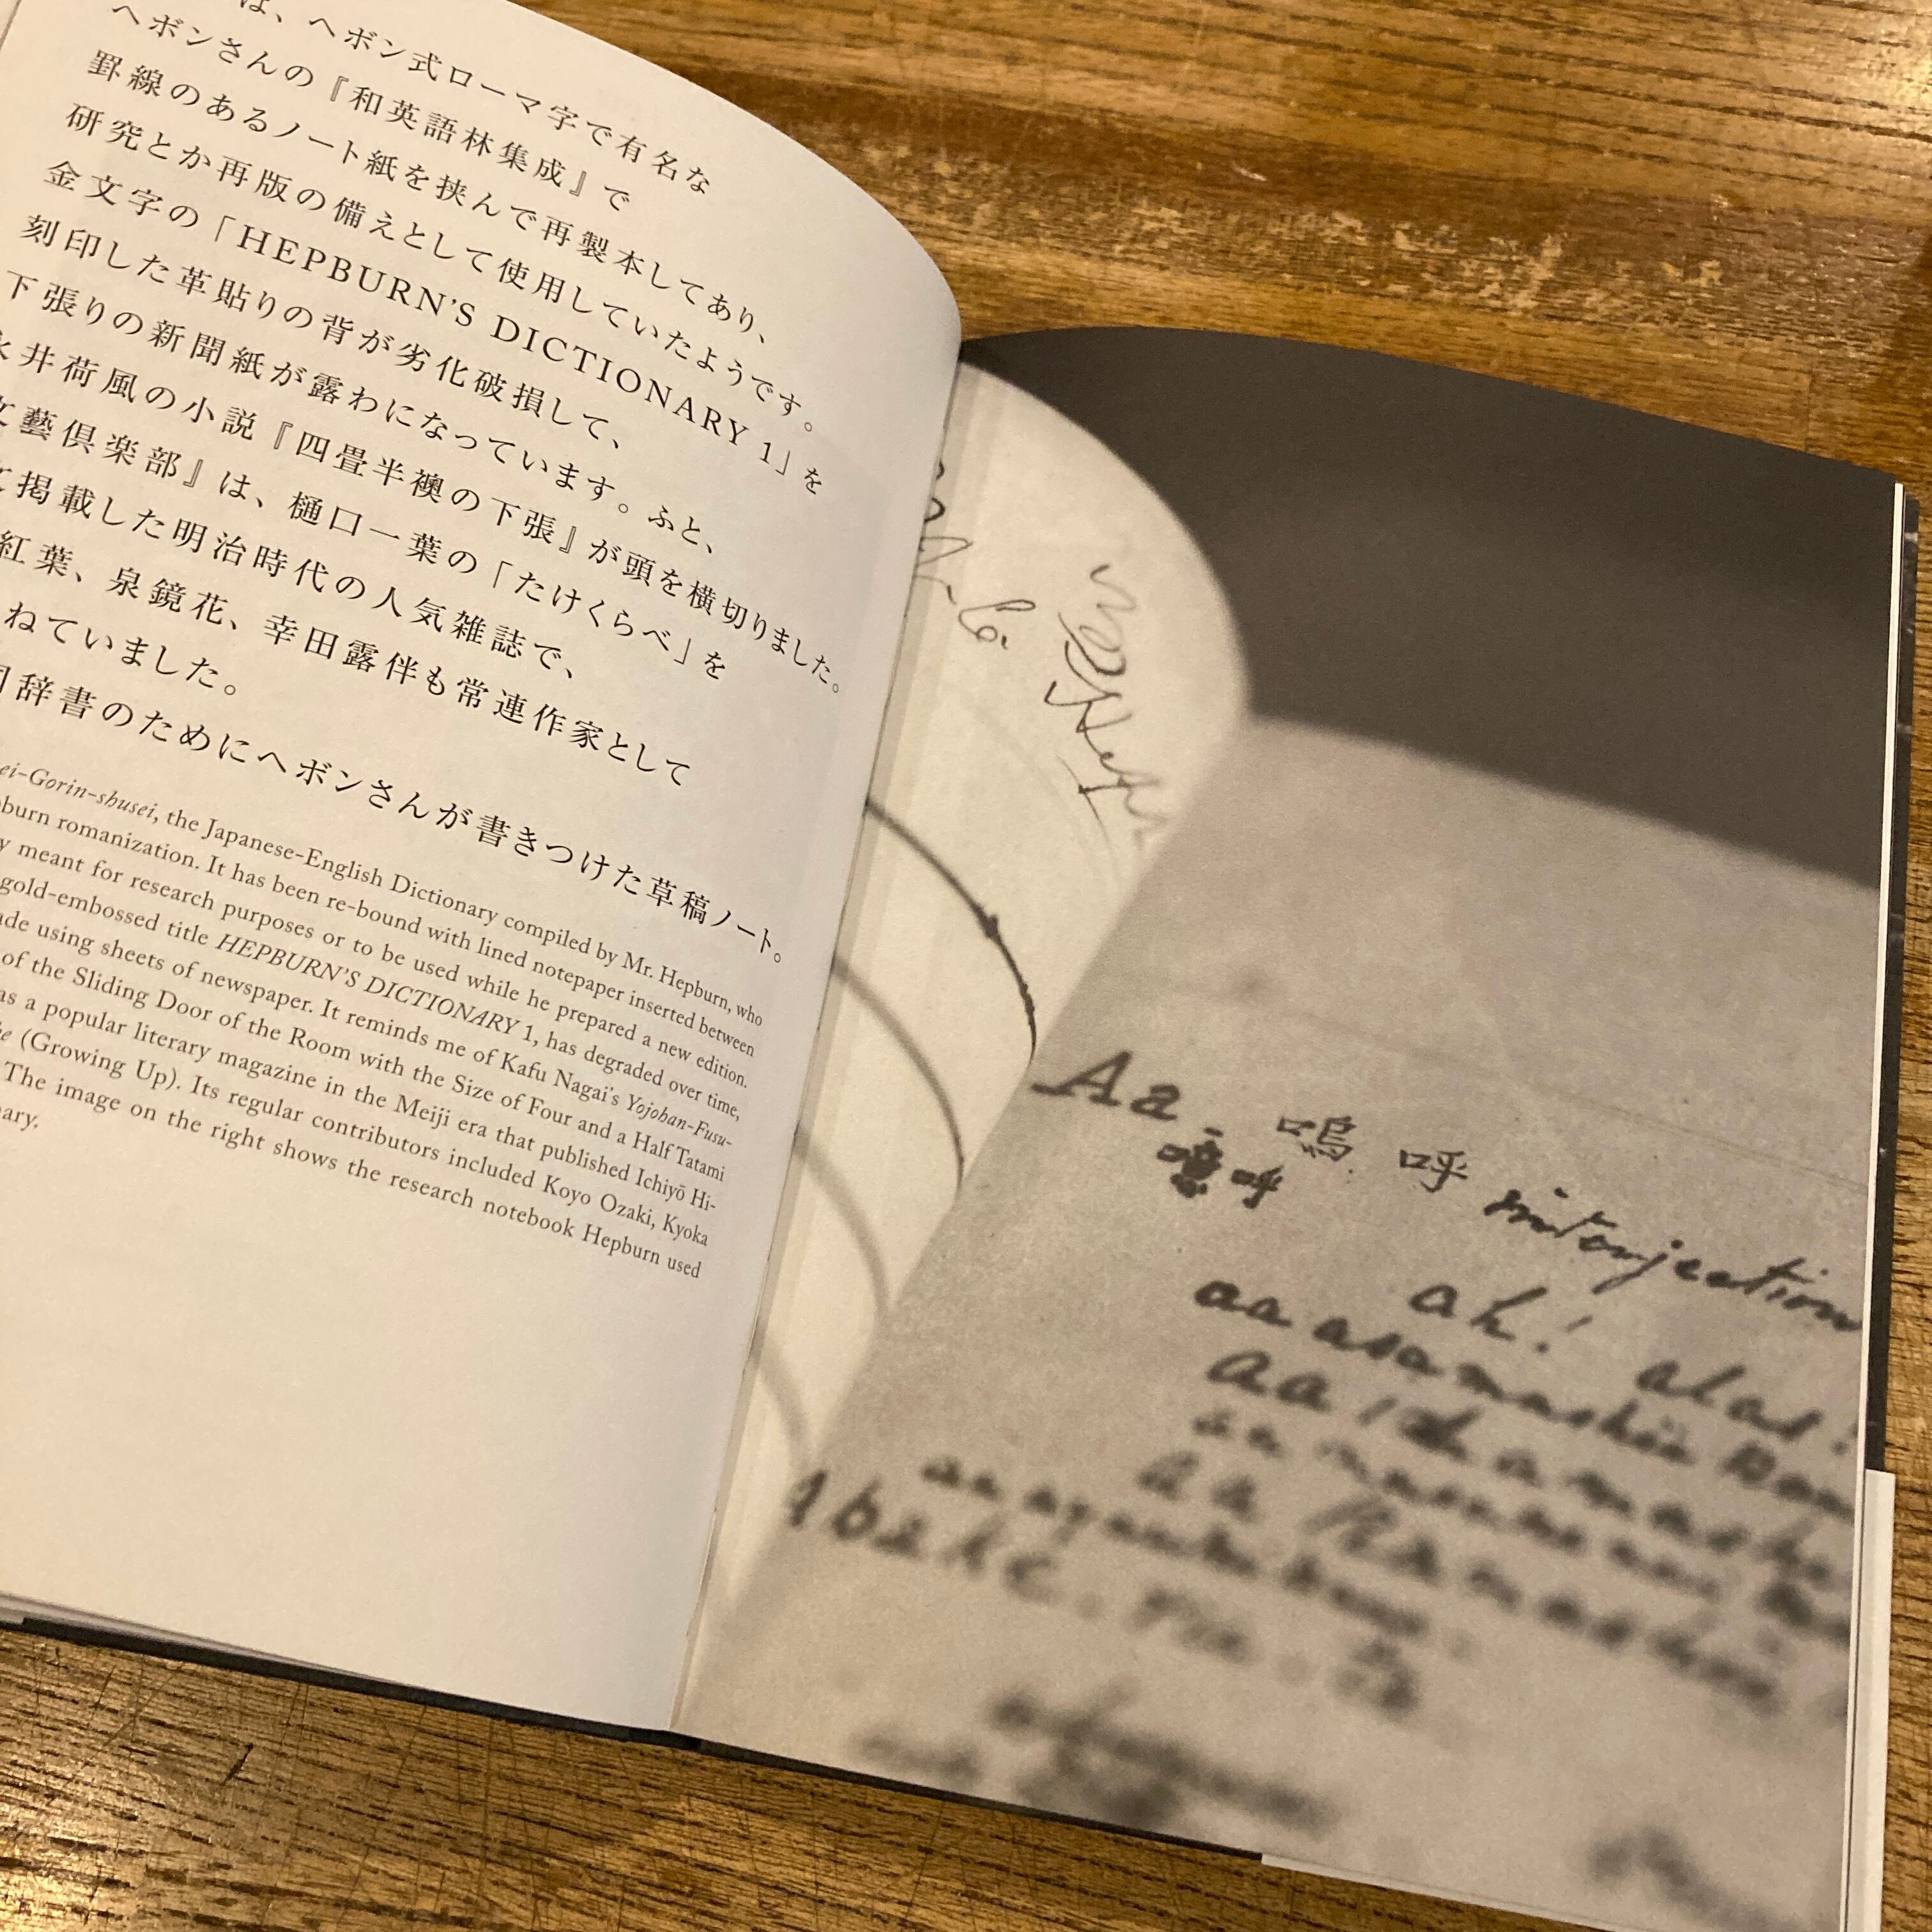 は、ヘボン式ローマ字で有名な
ヘボンさんの『和英語林集成』で
罫線のあるノート紙を挟んで再製本してあり、
研究とか再版の備えとして使用していたようです。
金文字の「HEPBURN'S DICTIONARY 1」を
刻印した革貼りの背が劣化破損して、
下張りの新聞紙が露わになっています。ふと、
永井荷風の小説『四畳半襖の下張』が頭を横切りました。
文藝倶楽部』は、樋口一葉の「たけくらべ」を
掲載した明治時代の人気雑誌で、
紅葉、泉鏡花、幸田露伴も常連作家として
ねていました。
辞書のためにヘボンさんが書きつけた草稿ノート。
ei-Gorin-shusei, the Japanese-English Dictionary compiled by Mr. Hepburn, who
burn romanization. It has been re-bound with lined notepaper inserted between
y meant for research purposes or to be used while he prepared a new edition.
gold-embossed title HEPBURN'S DICTIONARY 1, has degraded over time,
ade using sheets of newspaper. It reminds me of Kafu Nagai's Yojohan-Fusu-
of the Sliding Door of the Room with the Size of Four and a Half Tatami
as a popular literary magazine in the Meiji era that published Ichiyō Hi-
he (Growing Up). Its regular contributors included Koyo Ozaki, Kyoka
The image on the right shows the research notebook Hepburn used
ary.
Aa. 嗚呼 interjection
噫呼
ah! alas!
aa asamashii
aa